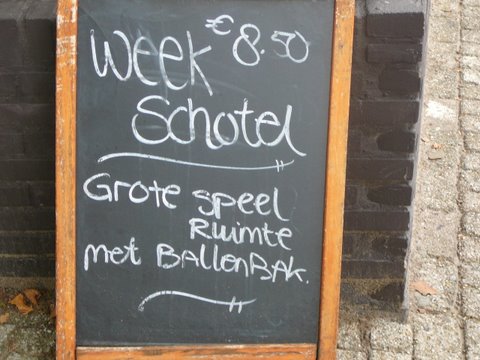 Week € 8.50
Schotel
Grote speel
Ruimte
met BallenBAK.